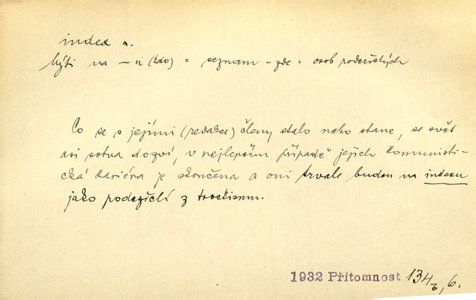 index m.
býti na -u (kdo) = seznam - zde = osob podezřelých
Co se s jejími (redakce) členy stalo nebo stane, se svět
asi sotva dozví, v nejlepším případě jejich komunisti-
cká kariéra je skončena a oni trvale budou na indexu
jako podezřelí z trockismu.
1932 Přítomnost 134, 6.